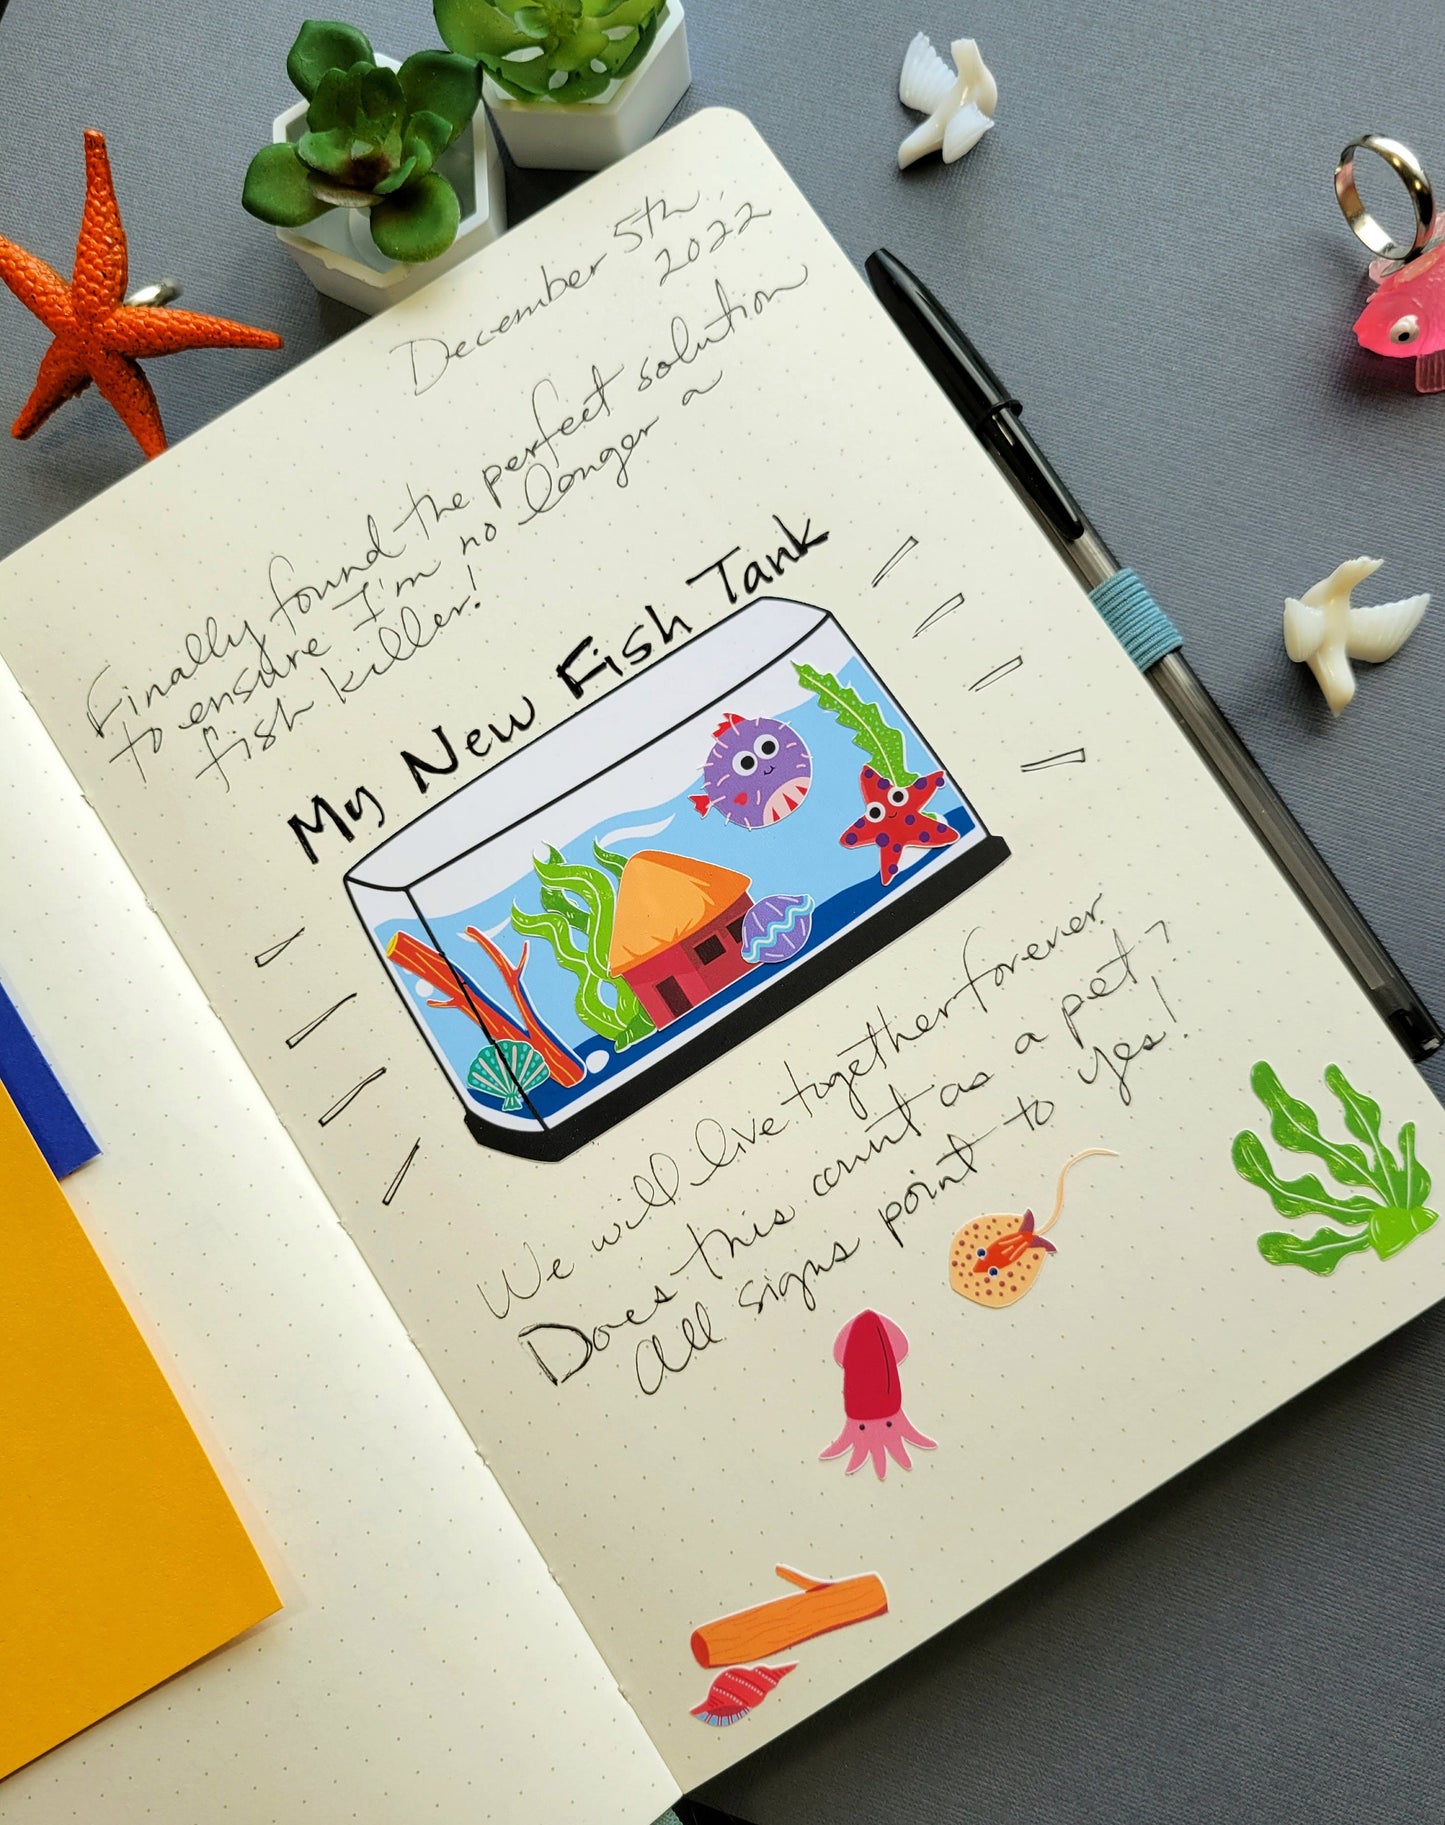 December 5th,
2022
Finally found the perfect solution
to ensure I'm no longer a
fish killer!
My New Fish Tank
We will live together forever.
Does this count as a pet?
All signs point to yes!